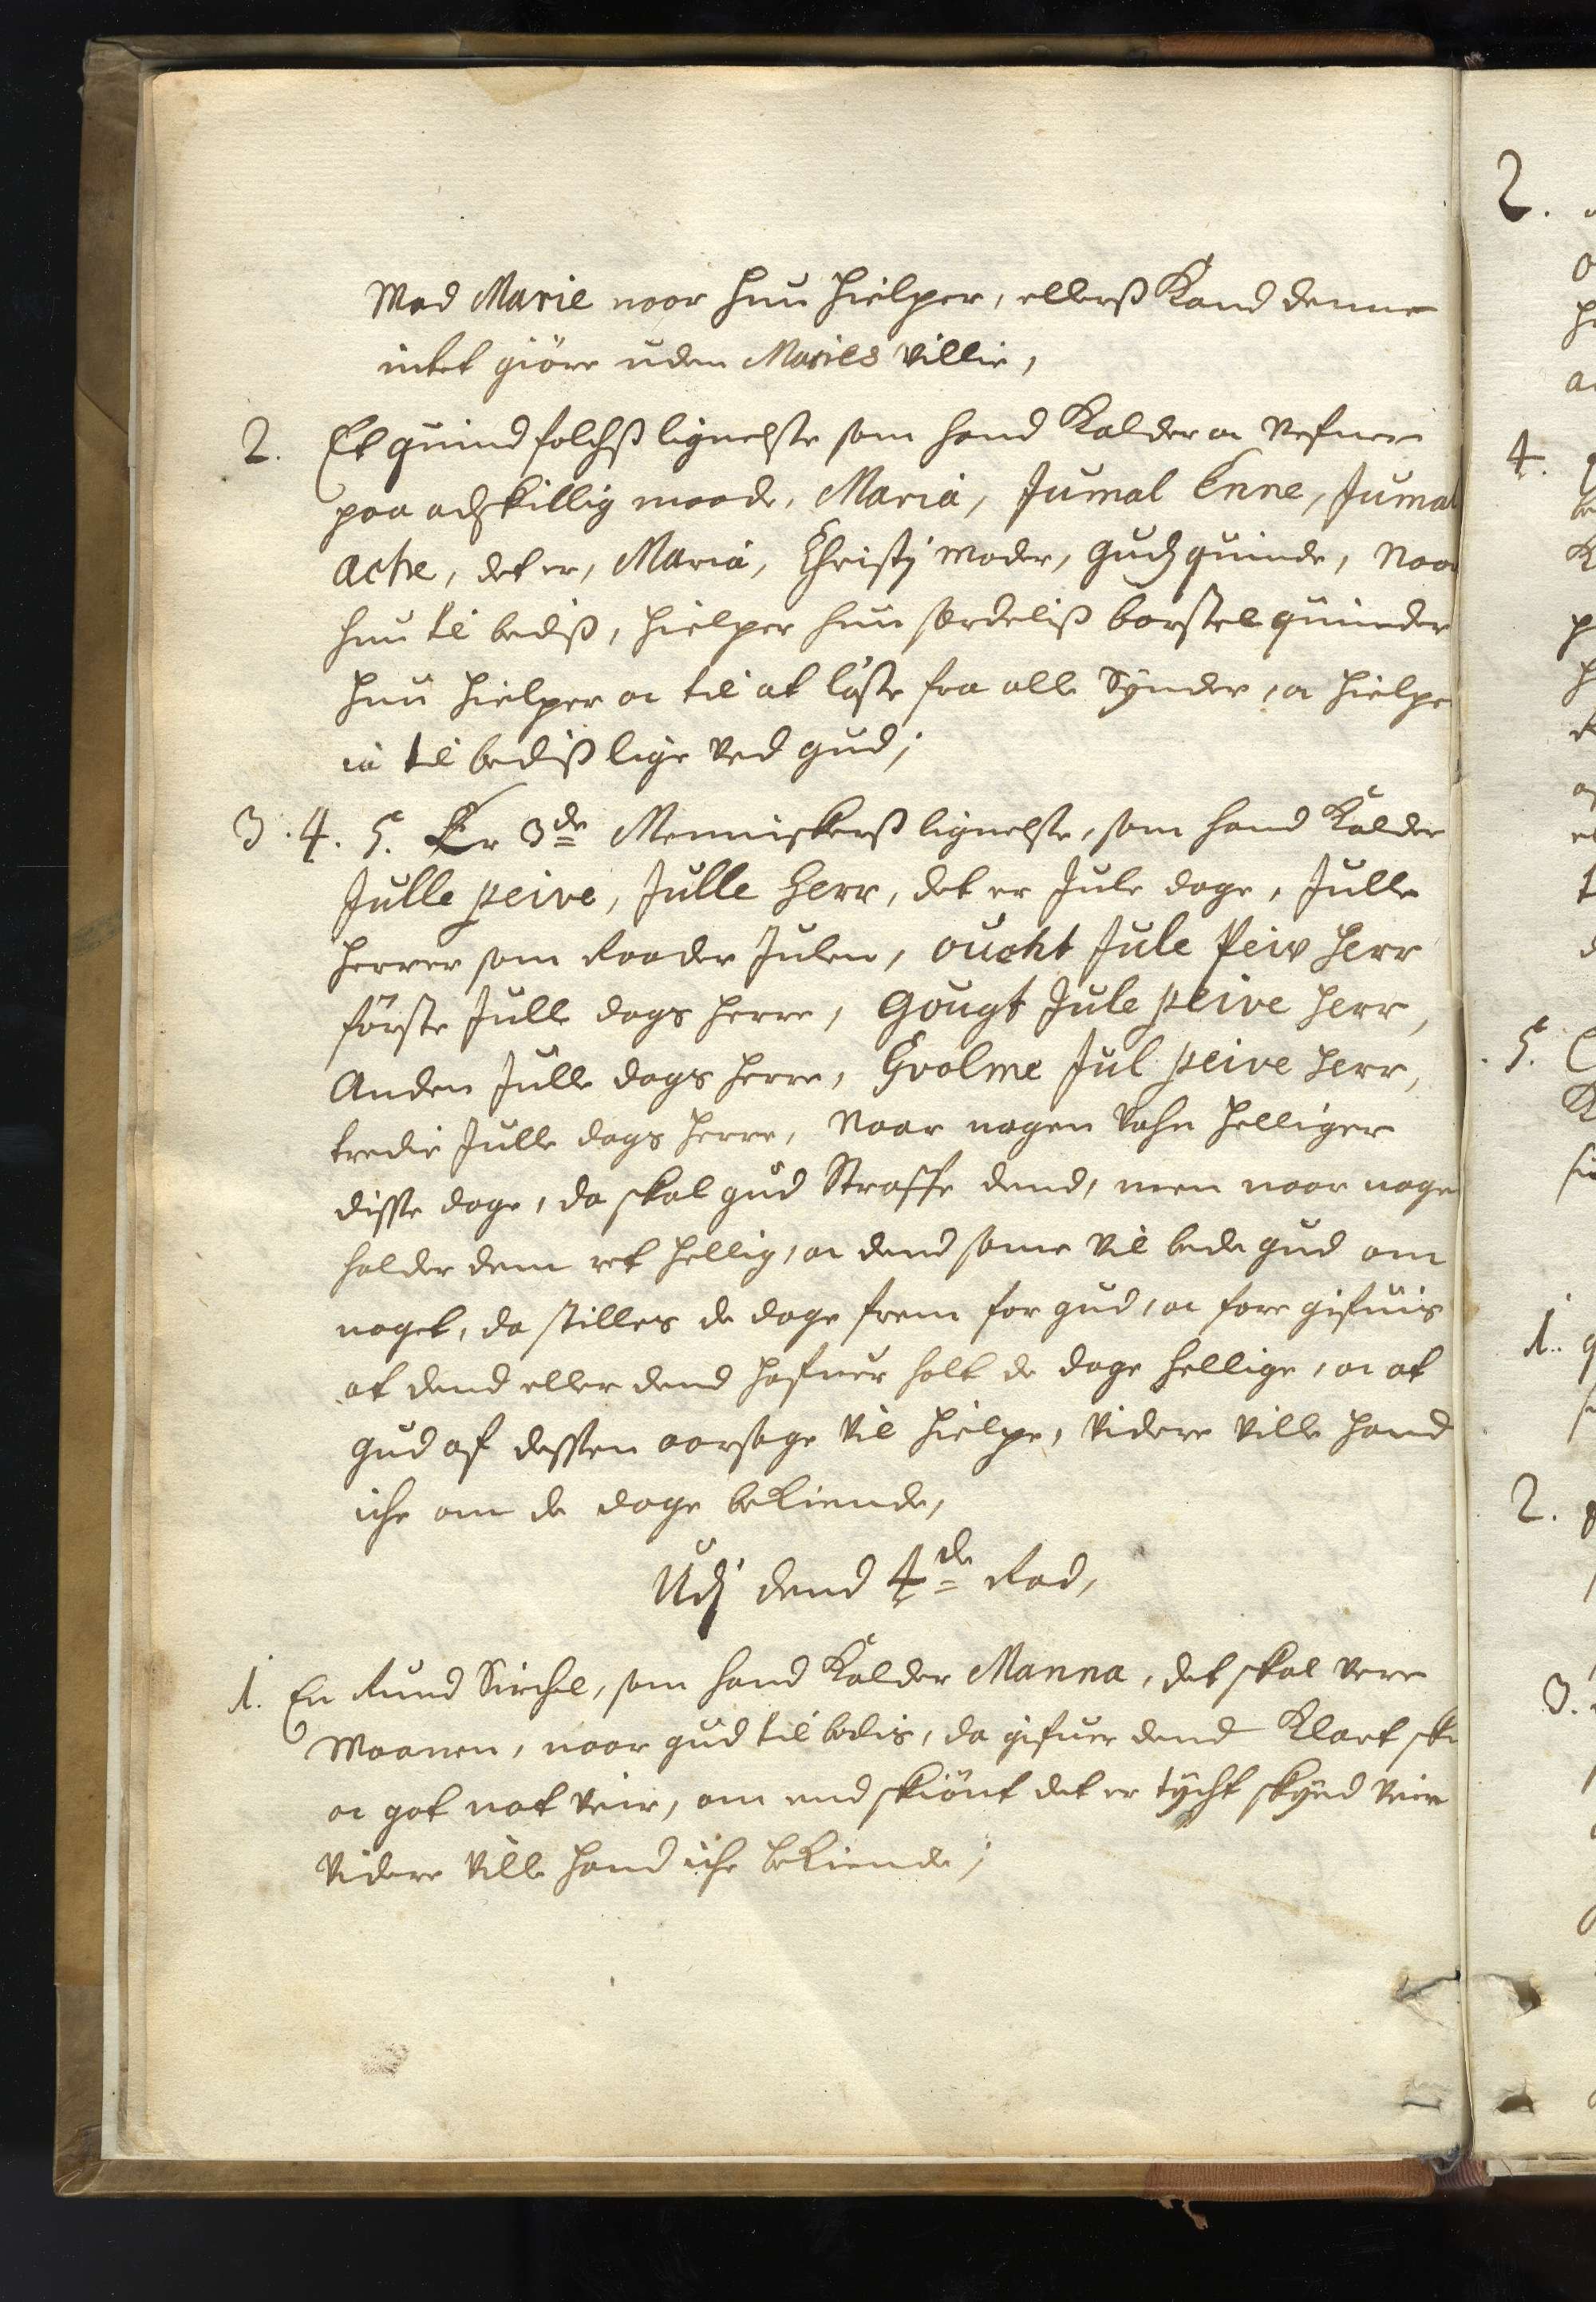 Med Marie naar hun hielper, ellerß kand denne
intet giöre uden Maries villie,
2. Et quindfolchß lignelße som hand kalder oc nefner
paa adskillig maade, Maria, Jumal Enne, Jumal
Ache, det er, Maria, Christj moder, Gudz quinde, Naar
hun til bediß, hielper hun særdeliß barßelquinder
hun hielper oc til at lösße fra alle Synder, oc hielpe
ia til bediß lige ved gud;
3. 4. 5. Er 3de Menniskerß lignelße, som hand kalder
Julle peive, Julle Herr, det er Jule dage, Julle
herrer som Raader Julen, oucht Jule Peiv Herr
förste Julle dags herre, Gougt Jule peive herr,
Anden Julle dags herre, Gvolme Jul peive herr,
tredie Julle dags herre, Naar nogen vahn helliger
disse dage, da skal gud Straffe dend, men naar noge
holder dem ret hellig, oc dend samme vil bede gud om
noget, da stilles de dage frem for gud, oc fore gifuis
at dend eller dend hafuer holt de dage hellige, oc at
gud af dessen aarsage vil hielpe, videre ville hand
iche om de dage bekiende,
Udj dend 4de Rad,
1. En Rund Circhel, som hand kalder Manna, det skal vere
Maanen, naar gud til bedis, da gifuer dend klart ski
oc got nat veir, om end skiönt det er tycht skyed veir
videre ville hand iche bekiende;
2.
4.
5.
1.
2.
3.